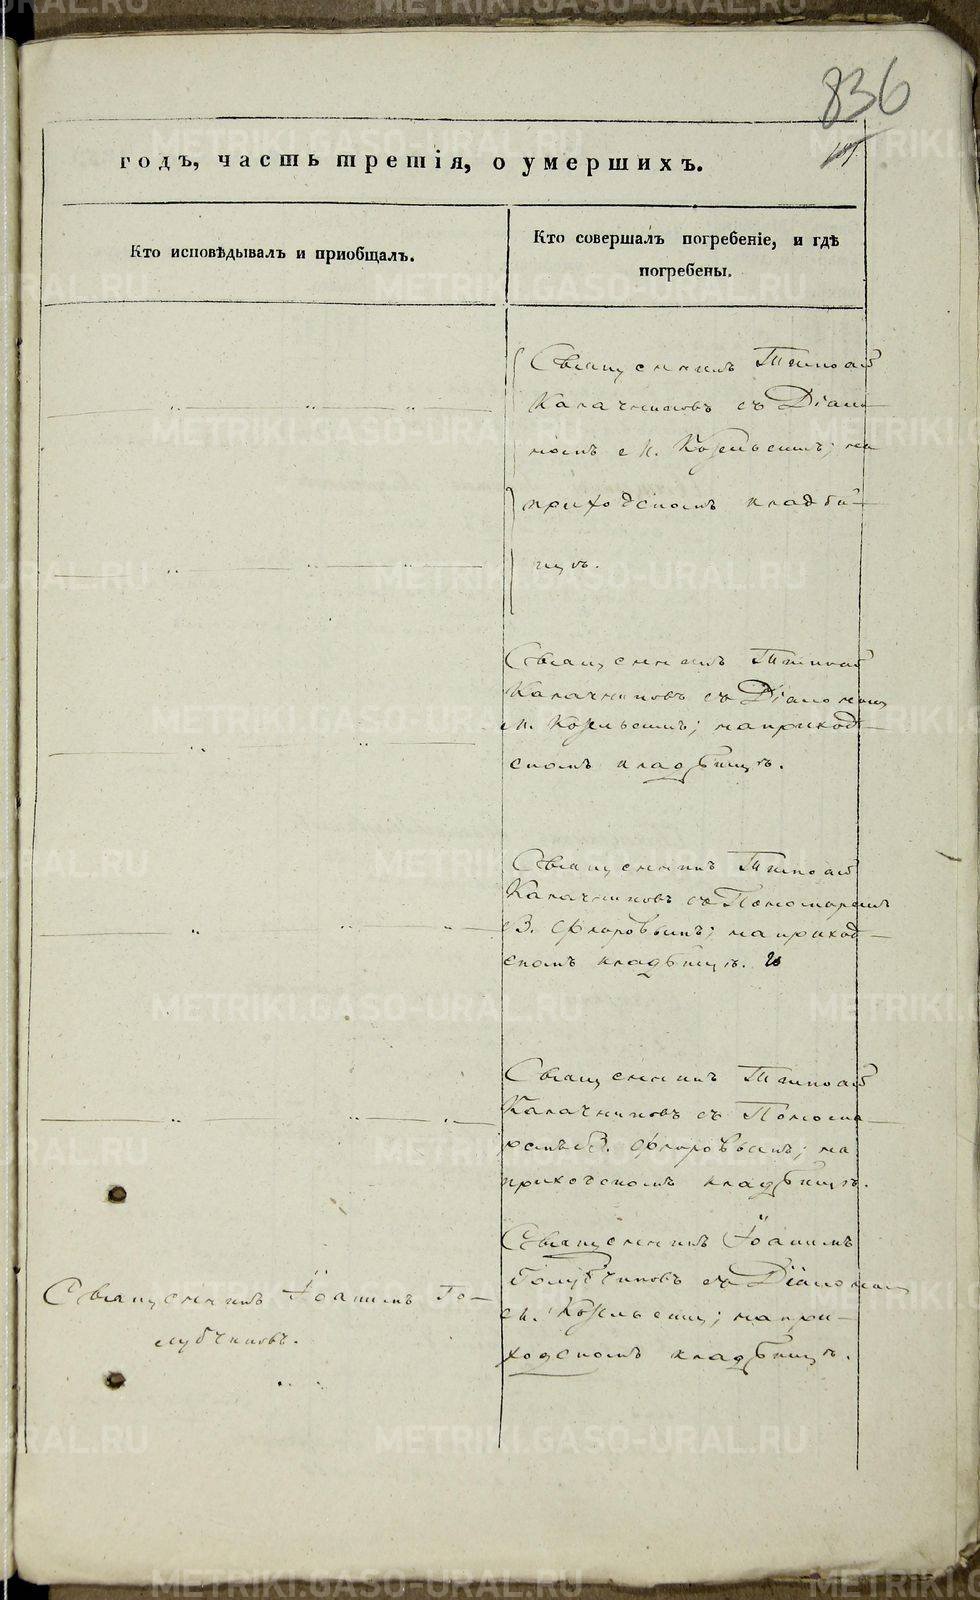 836
годъ, часть третія, о умершихъ.
Кто исповѣдывалъ и приобщалъ.
Кто совершалъ погребеніе, и гдѣ
погребены.
Священникъ Тимоѳей
Калачниковъ съ Діако-
номъ М. Козельскимъ; на
приходскомъ кладби-
щѣ.
Священникъ Тимоѳей
Калачниковъ съ Діакономъ
М. Козельскимъ; на приход-
скомъ кладбищѣ.
Священникъ Тимоѳей
Калачниковъ съ Пономаремъ
В. Флоровымъ; на приход-
скомъ кладбищѣ.
Священникъ Тимоѳей
Калачниковъ съ Понома-
ремъ В. Флоровымъ; на
приходскомъ кладбищѣ.
Священникъ Іоакимъ Го-
лубчиковъ.
Священникъ Іоакимъ
Голубчиковъ съ Діакономъ
М. Козельским; на при-
ходскомъ кладбищѣ.
METRIKI.GASO-URAL.RU